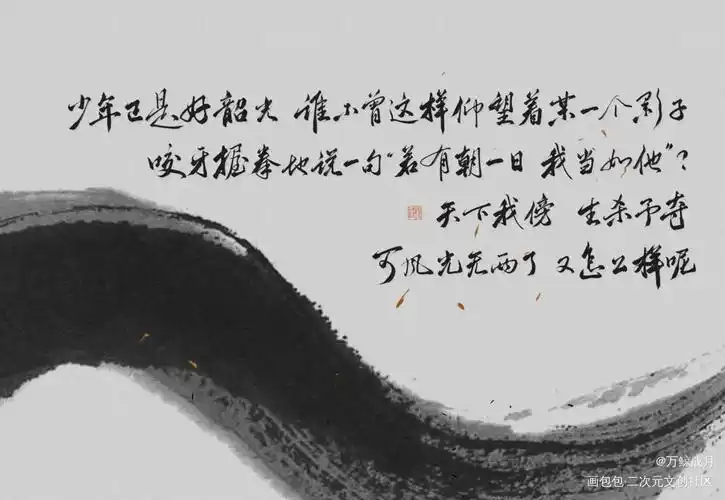 少年已是好韶光 谁不曾这样仰望着某一个影子
咬牙握拳地说一句“若有朝一日 我当如他”？
天下我傍 生杀予夺
可风光无两了 又怎么样呢
@万鲸成月
画包包·二次元文创社区